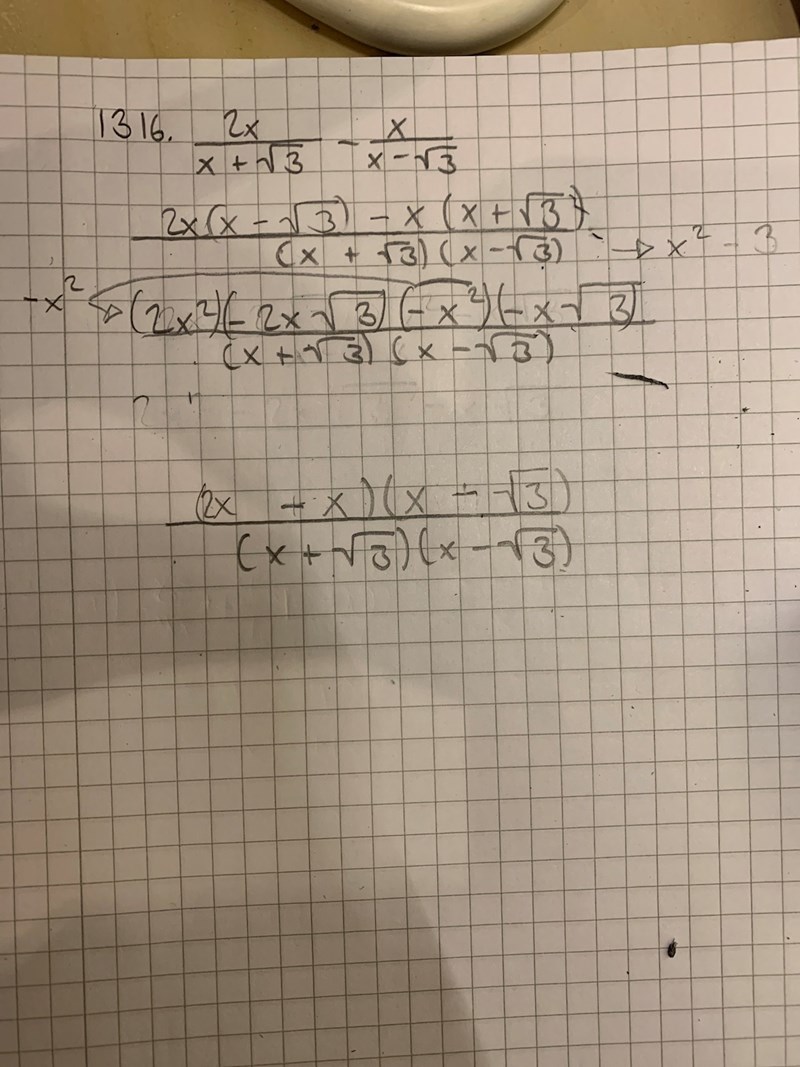 1316. 2x/(x + √3) - x/(x - √3)
2x(x - √3) - x(x + √3)
(x + √3)(x - √3) → x² - 3
-x² (2x²)(- 2x√3)(-x²)(-x√3)
(x + √3)(x - √3)
(2x + x)(x - √3)
(x + √3)(x - √3)